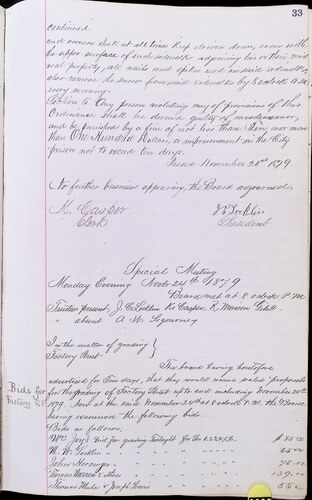 33
continued
and owners shall at all times keep driven down, even with
the upper surface of such sidewalk adjoining his or their said
real property, all nails and spikes used in said sidewalks,
also remove the snow from said sidewalks by 8 o'clock A.M.
every morning.
Any person violating any of provisions of this
Ordinance shall be deemed guilty of misdemeanor,
and be punished by a fine of not less than Ten nor more
than One Hundred Dollars, or imprisonment in the City
prison not to exceed ten days.
Passed November 20th 1879
No further business appearing, the Board adjourned.
K. Casper
Clerk
J C Locklin
President
Special Meeting
Monday Evening Nov 24th 1879
Board met at 8 o'clock P.M.
Trustees present, J. C. Locklin K. Casper, R. Morrow
" absent A. W. Sigourney
In the matter of grading
Factory Street
The board having heretofore
advertised for Ten days, that they would receive sealed proposals
for the grading of Factory Street up to and including November 24th
1879. And at the said November 24th at 8 o'clock P.M. the Board
having examined the following bids.
Bids for
Factory St
Bids as follows;
Wm Joy's Bid for grading
W. W. Locklin " 65.00
John " 75.00
Thomas " 139.00
Thomas & Joseph Lewis 55